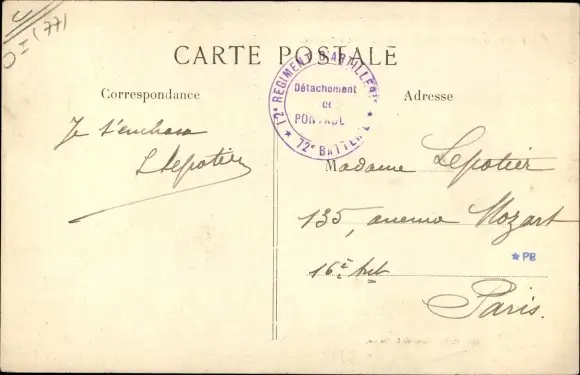 OI (77)
CARTE POSTALE
12e REGIMENT D'ARTILLERIE
Détachement
de
PONTAUL
★ 72e BATTERIE ★
Correspondance
Adresse
Je t'embrasse
L Lepotier
Madame Lepotier
135, avenue Mozart
★ PB
16e
Paris.